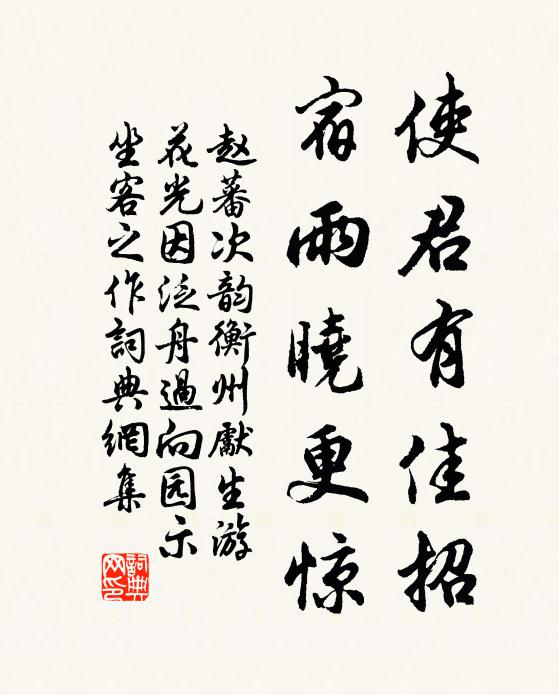 使君有佳招
宿雨曉更惊
赵蕃次韵衡州獻生游
花光因泛舟過向园示
坐客之作詞典網集
詞典網印